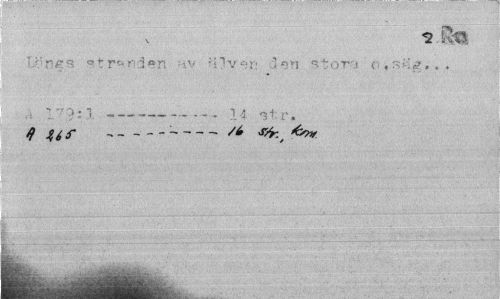 2 Ra
Längs stranden av älven den stora o.säg...
A 179:1 ----------- 14 str.
A 265 --------- 16 str., kom.